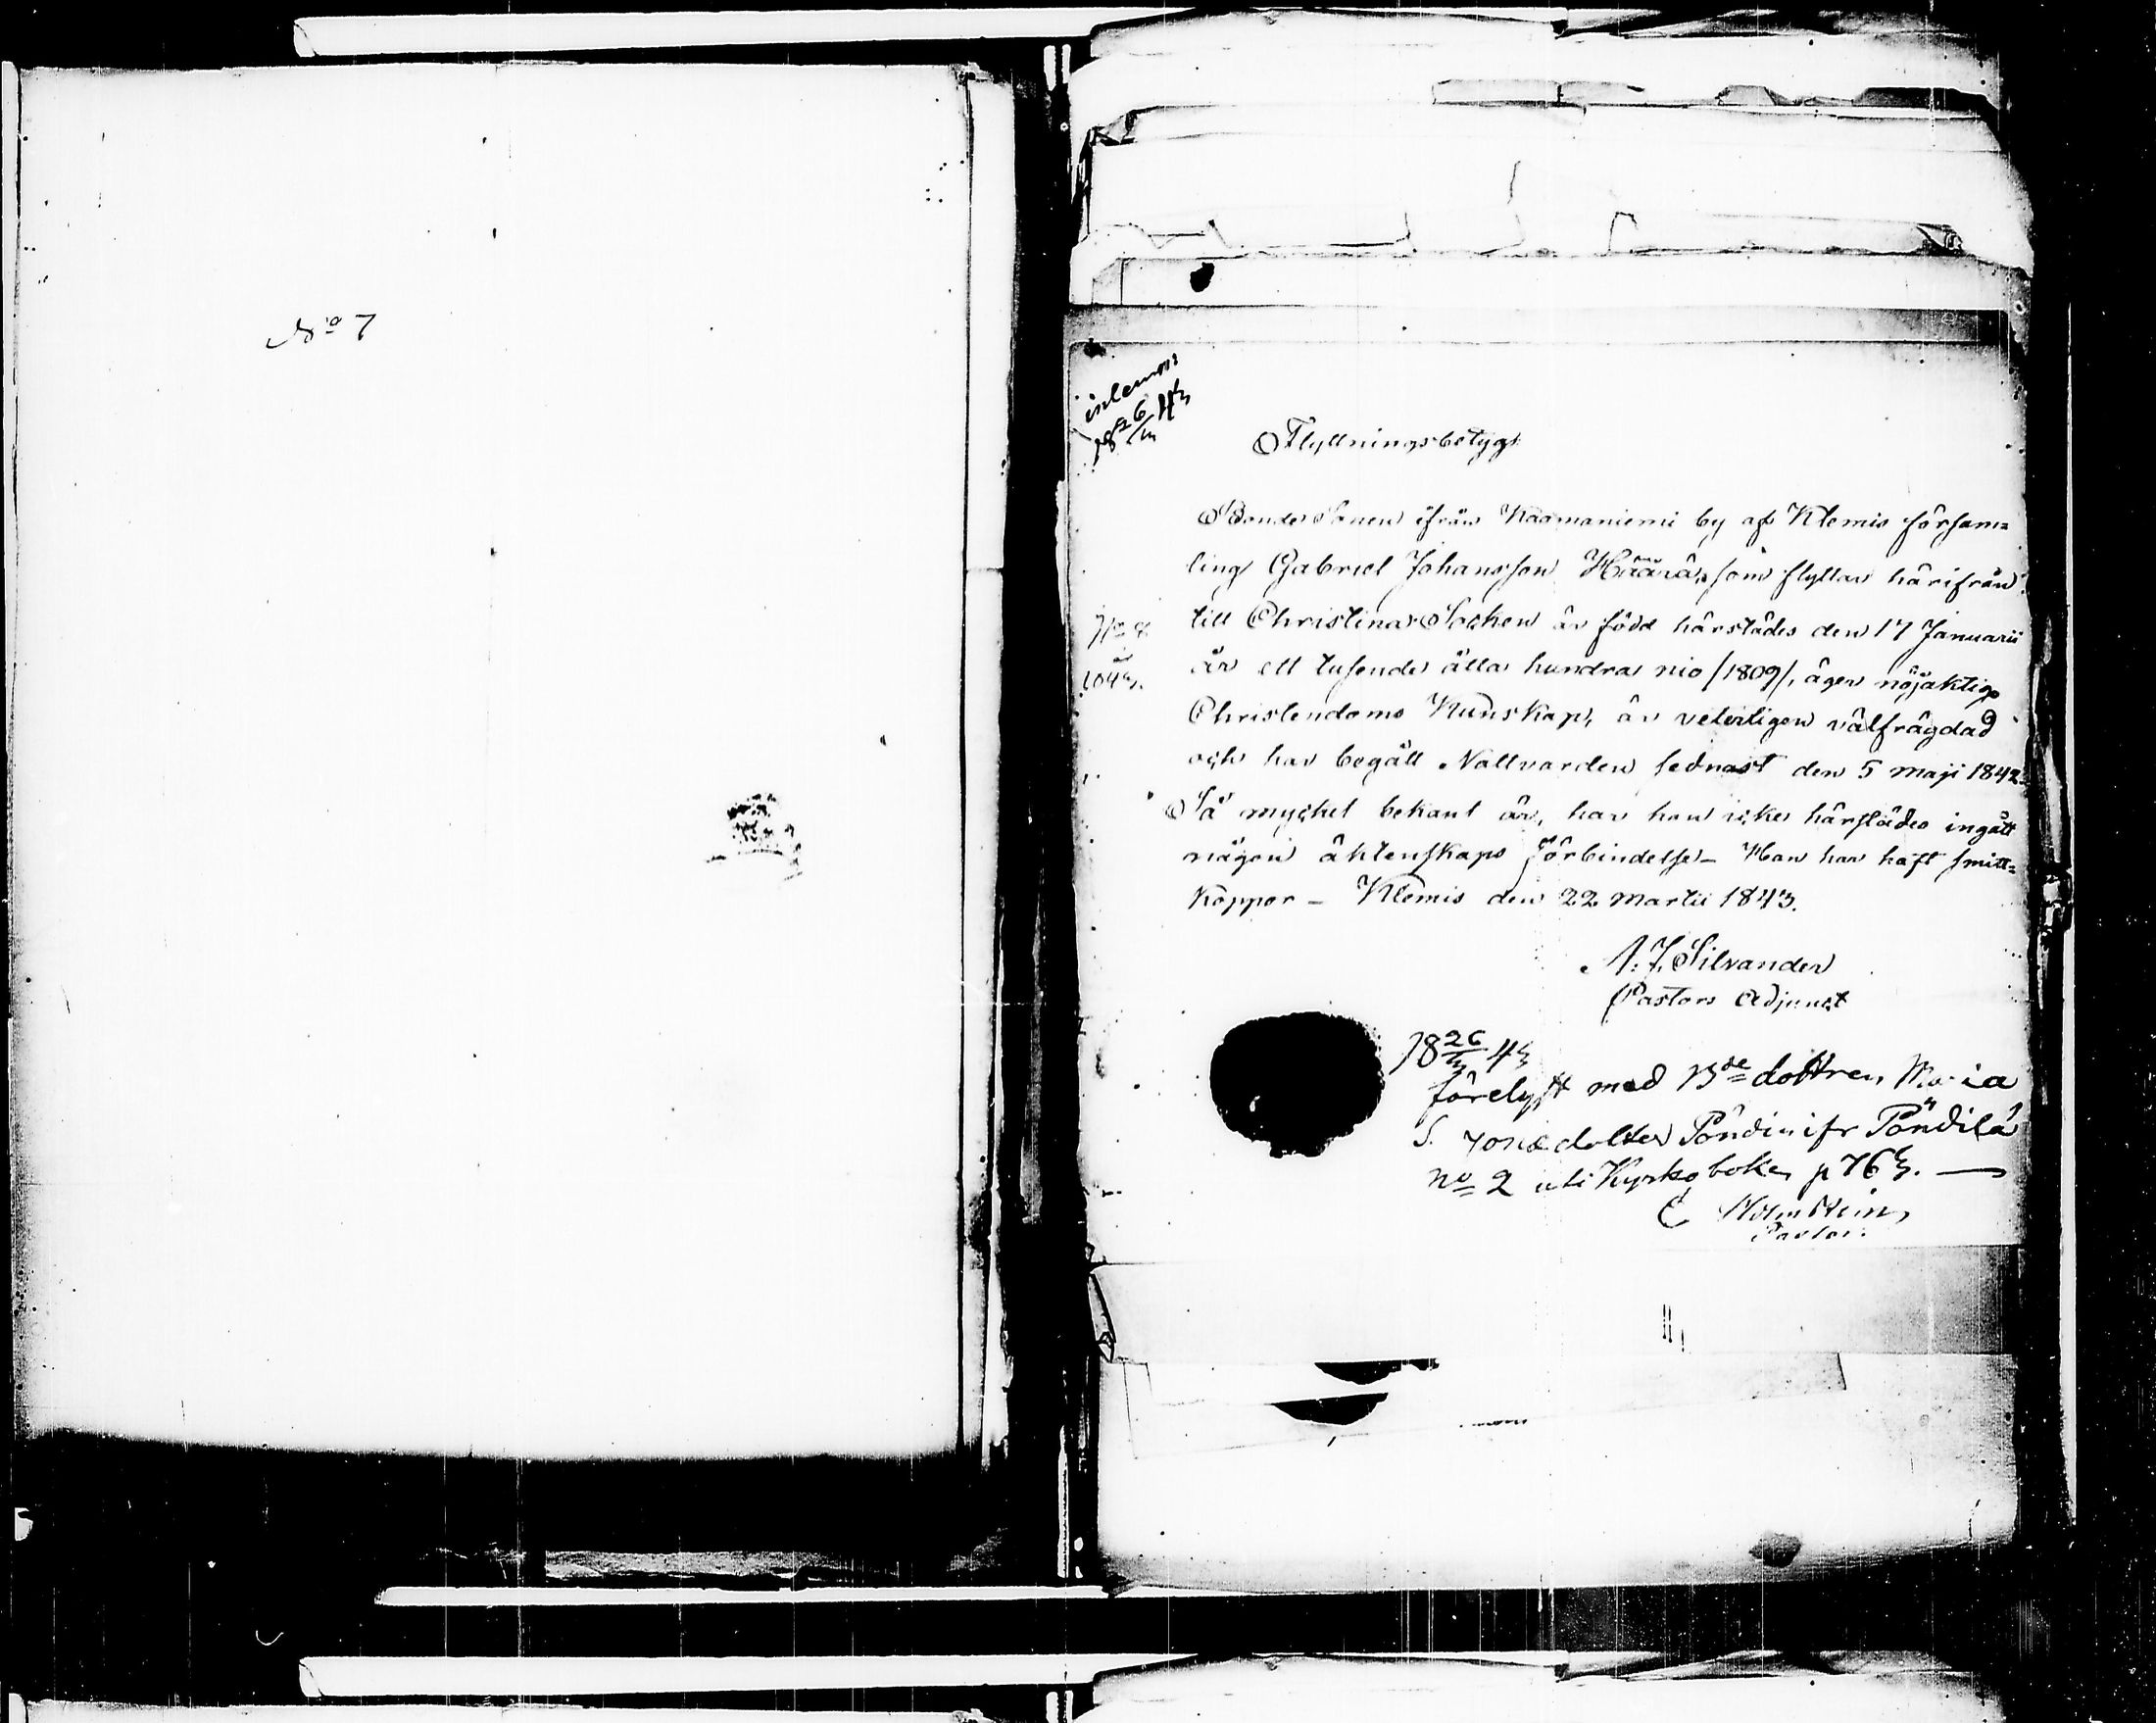 No 7
inlemn:
18 26/3 43
Flyttningsbetyg
Bonde Sonen ifrån Kaamaniemi by af Klemis försam=
ling Gabriel Johansson Häärä, som flyttar härifrån
till Christina Socken är född härstädes den 17 Januarii
år ett tusende åtta hundra nio /1809/, äger nöjaktig
Christendoms Kunskap, är veterligen välfrägdad
och har begått Nattvarden sednast den 5 Maji 1842.
Så mycket bekant är, har han icke härstädes ingått
någon äktenskaps förbindelse – Han har haft smitt=
koppor – Klemis den 22 Martii 1843.
No 7
år
1843.
N. J. Silvander
Pastors Adjunct
18 26/3 43
förelyst med Bde dottren Maria
S. dotter Pöndin ifr Pöndilä
no 2 uti Kyrko boken p 763. —
C Holmstein
Pastor.